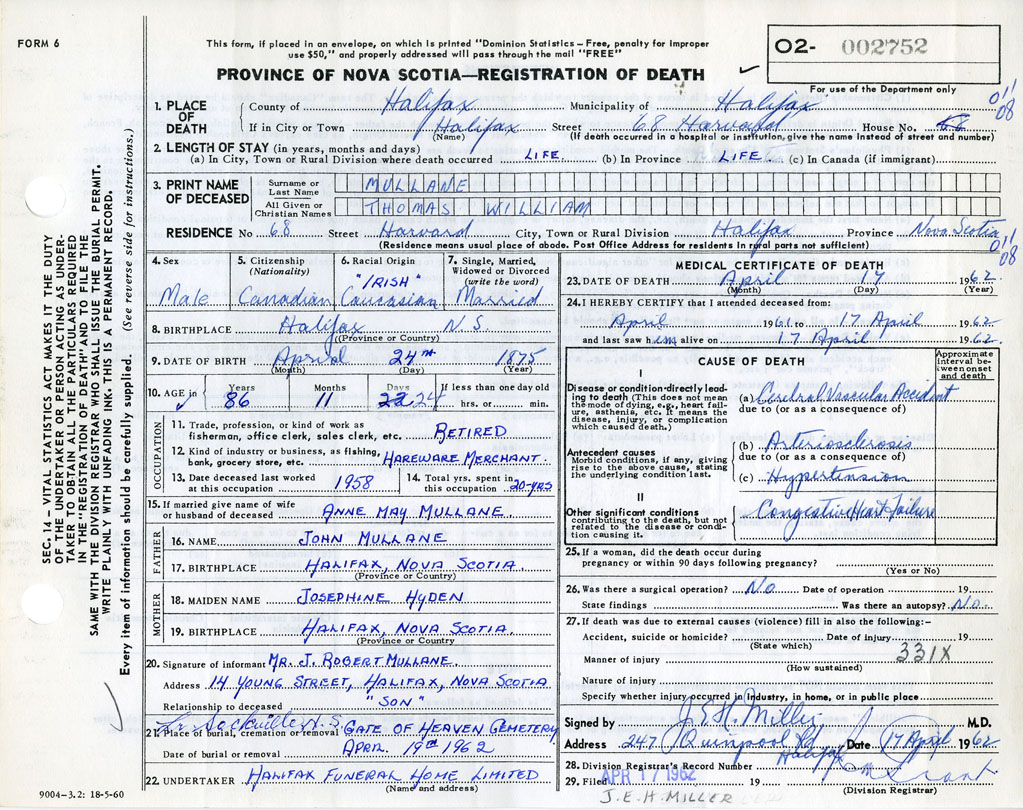 FORM 6
This form, if placed in an envelope, on which is printed "Dominion Statistics – Free, penalty for improper
use $50," and properly addressed will pass through the mail "FREE"
O2- 002752
For use of the Department only
PROVINCE OF NOVA SCOTIA—REGISTRATION OF DEATH
SEC. 14 – VITAL STATISTICS ACT MAKES IT THE DUTY
OF THE UNDERTAKER OR PERSON ACTING AS UNDER-
TAKER TO OBTAIN ALL THE PARTICULARS REQUIRED
IN THE "REGISTRATION OF DEATH" AND TO FILE THE
SAME WITH THE DIVISION REGISTRAR WHO SHALL ISSUE THE BURIAL PERMIT.
WRITE PLAINLY WITH UNFADING INK. THIS IS A PERMANENT RECORD.
Every item of information should be carefully supplied. (See reverse side for instructions.)
1. PLACE OF DEATH County of Halifax Municipality of Halifax 011 08
If in City or Town Halifax Street 68 Harvard House No. 68
(Name) (If death occurred in a hospital or institution, give the name instead of street and number)
2. LENGTH OF STAY (in years, months and days)
(a) In City, Town or Rural Division where death occurred LIFE (b) In Province LIFE (c) In Canada (if immigrant)
3. PRINT NAME OF DECEASED Surname or Last Name MULLANE
All Given or Christian Names THOMAS WILLIAM
RESIDENCE No 68 Street Harvard City, Town or Rural Division Halifax Province Nova Scotia 011 08
(Residence means usual place of abode. Post Office Address for residents in rural parts not sufficient)
4. Sex 5. Citizenship (Nationality) 6. Racial Origin 7. Single, Married, Widowed or Divorced (write the word)
"IRISH"
Male Canadian Caucasian Married
8. BIRTHPLACE Halifax N.S.
(Province or Country)
9. DATE OF BIRTH April 24TH 1875
(Month) (Day) (Year)
10. AGE in Years Months Days If less than one day old
86 11 24 hrs. or min.
OCCUPATION
11. Trade, profession, or kind of work as
fisherman, office clerk, sales clerk, etc. RETIRED
12. Kind of industry or business, as fishing,
bank, grocery store, etc. HAREWARE MERCHANT.
13. Date deceased last worked at this occupation 1958 14. Total yrs. spent in this occupation 20-YRS
15. If married give name of wife
or husband of deceased ANNE MAY MULLANE
FATHER
16. NAME JOHN MULLANE
17. BIRTHPLACE HALIFAX, NOVA SCOTIA.
(Province or Country)
MOTHER
18. MAIDEN NAME JOSEPHINE HYDEN
19. BIRTHPLACE HALIFAX, NOVA SCOTIA.
(Province or Country)
20. Signature of informant MR. J. ROBERT MULLANE.
Address 14 YOUNG STREET, HALIFAX, NOVA SCOTIA
Relationship to deceased "SON"
Sackville N.S.
21. Place of burial, cremation or removal GATE OF HEAVEN CEMETERY
Date of burial or removal APRIL 19th 1962
22. UNDERTAKER HALIFAX FUNERAL HOME LIMITED
(Name and address)
9004–3.2: 18-5-60
MEDICAL CERTIFICATE OF DEATH
23. DATE OF DEATH April 17 1962
(Month) (Day) (Year)
24. I HEREBY CERTIFY that I attended deceased from:
April 1961 to 17 April 1962
and last saw him alive on 17 April 1962
CAUSE OF DEATH
Approximate interval between onset and death
I
Disease or condition directly lead-
ing to death (This does not mean
the mode of dying, e.g., heart fail-
ure, asthenia, etc. It means the
disease, injury, or complication
which caused death.)
(a) Cerebral Vascular Accident
due to (or as a consequence of)
Antecedent causes
Morbid conditions, if any, giving
rise to the above cause, stating
the underlying condition last.
(b) Arteriosclerosis
due to (or as a consequence of)
(c) Hypertension
II
Other significant conditions
contributing to the death, but not
related to the disease or condi-
tion causing it.
Congestive Heart Failure
25. If a woman, did the death occur during
pregnancy or within 90 days following pregnancy?
(Yes or No)
26. Was there a surgical operation? No Date of operation 19
State findings Was there an autopsy? No
27. If death was due to external causes (violence) fill in also the following:–
Accident, suicide or homicide? Date of injury 19
(State which) 331X
Manner of injury
(How sustained)
Nature of injury
Specify whether injury occurred in industry, in home, or in public place
Signed by J.E.H. Miller M.D.
Address 247 Quinpool Rd Halifax Date 17 April 1962
28. Division Registrar's Record Number
29. Filed APR 17 1962 19
(Division Registrar)
J. E. H. MILLER